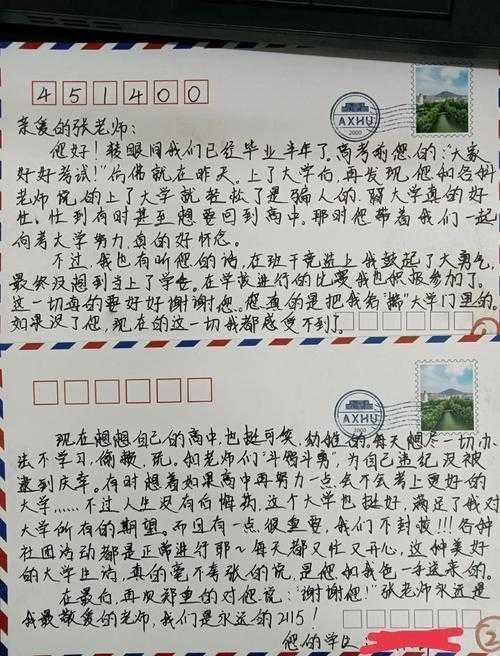 451400
AXHU
2000
亲爱的张老师:
您好!转眼间我们已经毕业半年了。高考前您的:"大家
好好考试!"仿佛就在昨天。上了大学后,再发现,您和各科
老师说的上了大学就轻松了是骗人的。睸大学真的好
忙,忙到有时甚至想要回到高中。那时您带着我们一起
向着大学努力,真的好怀念。
不过,我也有听您的话,在班干竞选上我鼓起了大勇气,
最终没想到当上了学委。在学校进行的比赛我也积极参加了。
这一切真的要好好谢谢您。您真的是把我给"踹"大学门里的。
如果没了您,现在的这一切我都感受不到了。
①
AXHU
2000
现在想想自己的高中,也挺可笑、幼稚的,每天想尽一切办
法不学习,偷懒,玩。和老师们"斗智斗勇",为自己违纪没被
逮到庆幸。有时想着如果高中再努力一点会不会考上更好的
大学……不过人生没有后悔药,这个大学也挺好,满足了我对
大学所有的期望。而且有一点很重要,我们不封校!!!各种
社团活动都是正常进行耶~每天都又忙又开心,这种美好
的大学生活,真的毫不夸张的说,是您和我包一手送来的。
在最后,再次郑重的对您说:"谢谢您!"张老师永远是
我最敬爱的老师,我们是永远的2115!
您的学生
②